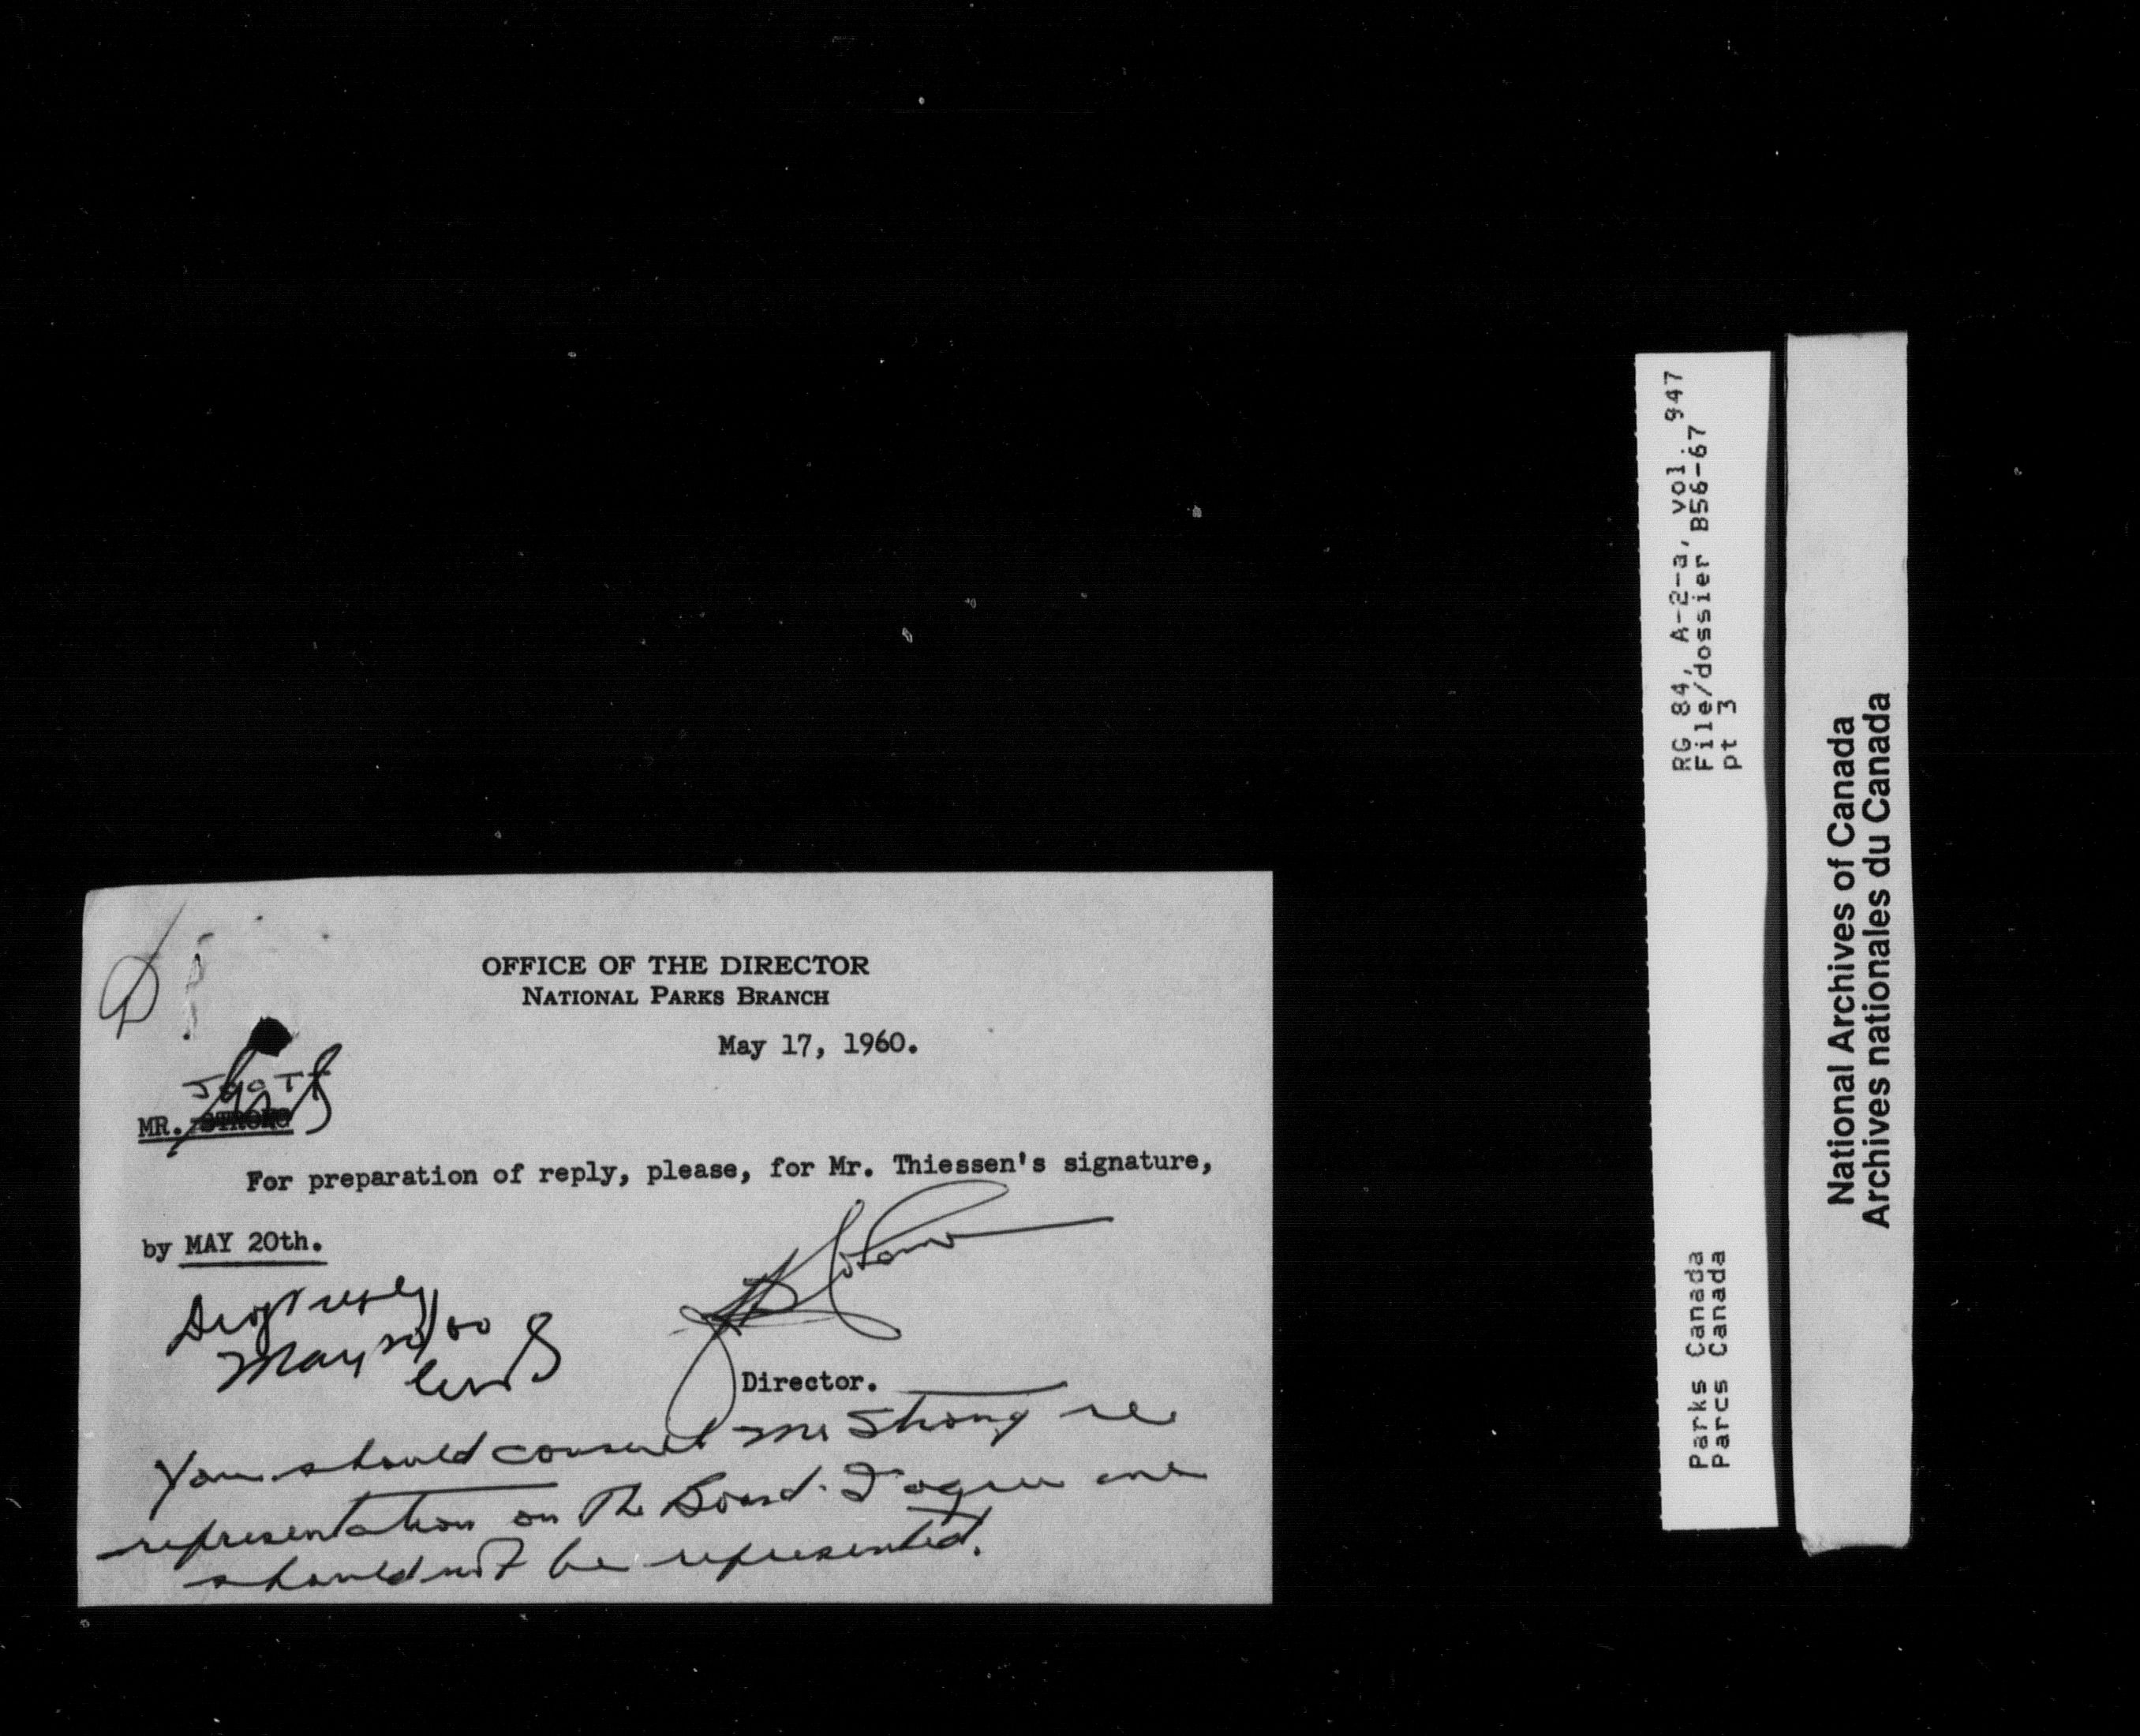 OFFICE OF THE DIRECTOR
NATIONAL PARKS BRANCH
May 17, 1960.
MR. STRONG
For preparation of reply, please, for Mr. Thiessen's signature,
by MAY 20th.
May 20/60
Director.
You should consult Mr Strong re
representation on the Board. I agree we
should not be represented.
RG 84, A-2-a, vol. 947
File/dossier B56-67
pt 3
Parks Canada
Parcs Canada
National Archives of Canada
Archives nationales du Canada